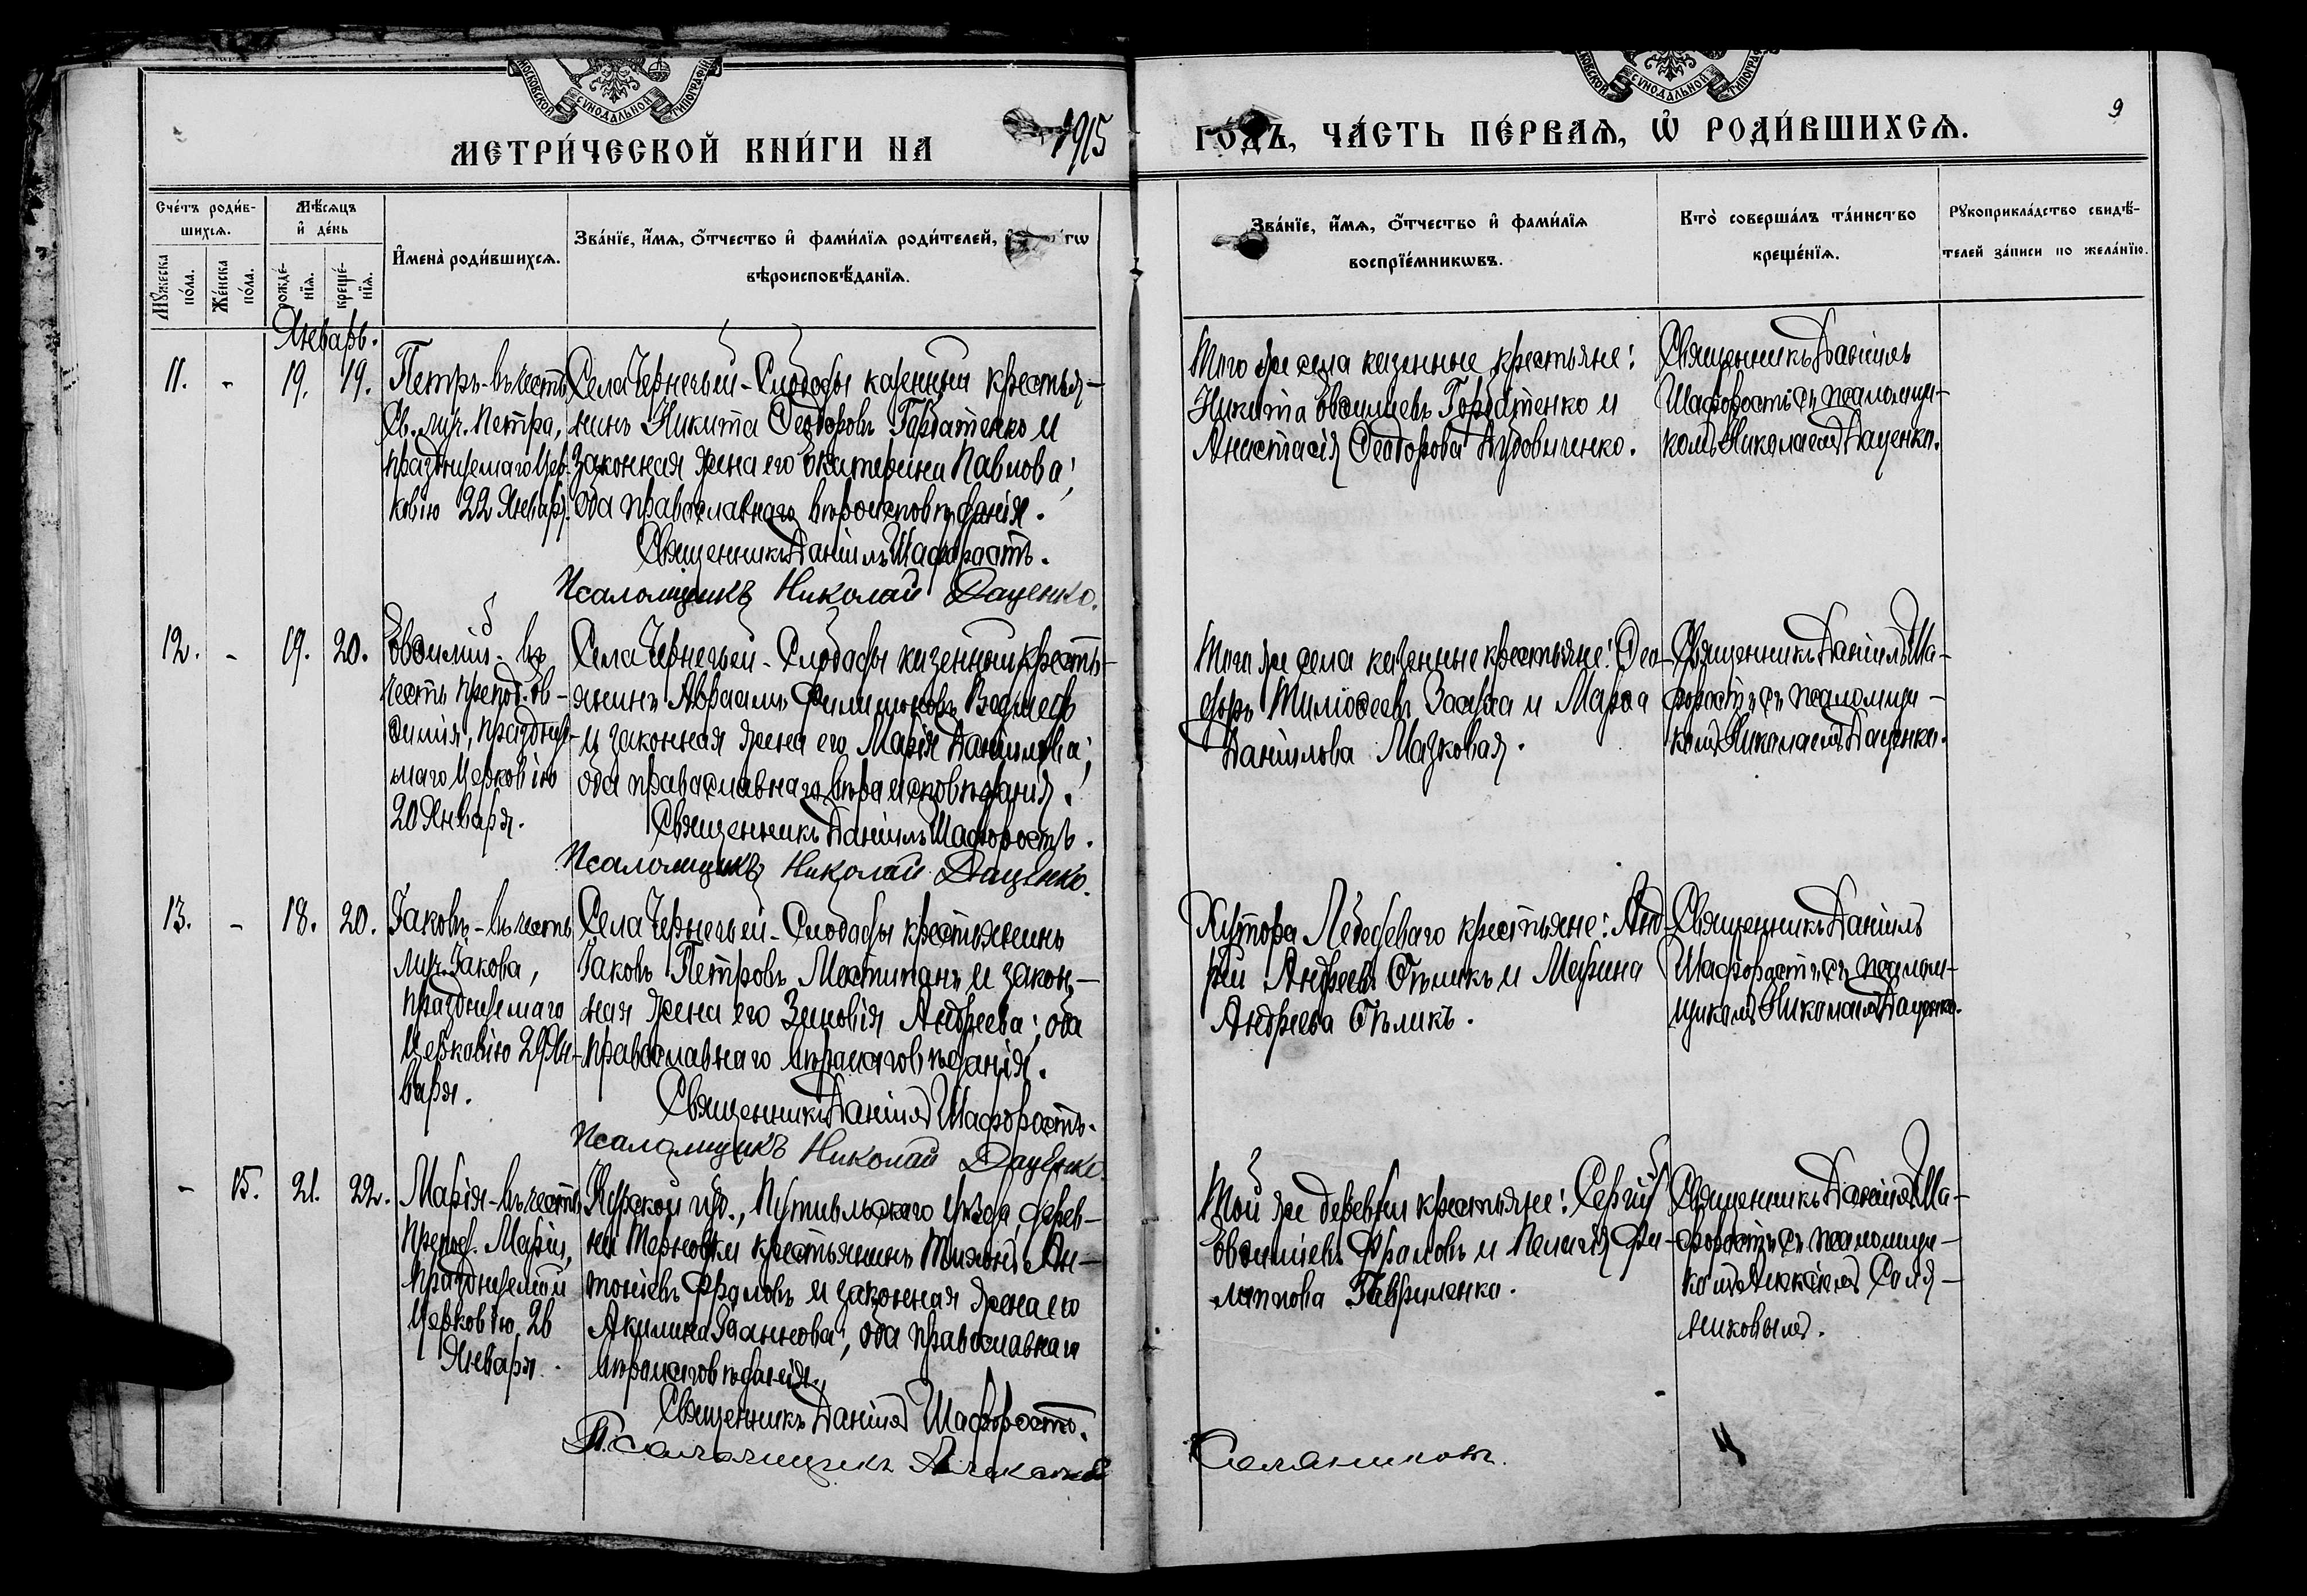 МОСКОВСКОЙ СѴНОДАЛЬНОЙ ТИПОГРАФІИ
СѴНОДАЛЬНОЙ ТИПОГРАФ
МЕТРИ́ЧЕСКОЙ КНИ́ГИ НА 1915
ГО́ДЪ, ЧА́СТЬ ПЕ́РВАѦ, Ѡ҆ РОДИ́ВШИХСѦ.
9
Сче́тъ роди́в-
шихсѧ.
Мѣ́сѧцъ
и҆ де́нь
Мꙋ́жеска
по́ла.
Же́нска
по́ла.
рожде́-
нїѧ.
креще́-
нїѧ.
И҆мена̀ роди́вшихсѧ.
Зва́нїе, и҆́мѧ, ѻ҆́тчество и҆ фами́лїѧ роди́телей,
вѣроисповѣ́данїѧ.
Зва́нїе, и҆́мѧ, ѻ҆́тчество и҆ фами́лїѧ
воспрїе́мникѡвъ.
Кто̀ соверша́лъ та́инство
креще́нїѧ.
Рꙋкоприкла́дство свидѣ́-
телей за́писи по жела́нїю.
Январь.
11. - 19. 19.
Петръ - въ честь
Св. муч. Петра,
празднуемаго Цер-
ковію 22 Январ.
Села Чернечьей-Слободы казенный крестья-
нинъ Никита Ѳеодоровъ Горбатенко и
законная жена его Екатерина Павлова;
оба православнаго вѣроисповѣданія.
Священникъ Даніилъ Шафоростъ.
Псаломщикъ Николай Даценко.
Того же села казенные крестьяне:
Никита Евѳиміевъ Горбатенко и
Анастасія Ѳеодорова Вдовиченко.
Священникъ Даніилъ
Шафоростъ съ псаломщи-
комъ Николаемъ Даценко.
12. - 19. 20.
Евѳимій - въ
честь препод. Ев-
ѳимія, праздну-
маго Церковію
20 Января.
Села Чернечьей-Слободы казенный кресть-
янинъ Авраамъ Филимоновъ Ведмедь
и законная жена его Марія Даніилова;
оба православнаго вѣроисповѣданія.
Священникъ Даніилъ Шафоростъ.
Псаломщикъ Николай Даценко.
Того же села казенные крестьяне: Ѳео-
доръ Тимоѳеевъ Заяка и Марѳа
Даніилова Мазковая.
Священникъ Даніилъ Ша-
форостъ съ псаломщи-
комъ Николаемъ Даценко.
13. - 18. 20.
Іаковъ - въ честь
муч. Іакова,
празднуемаго
Церковію 29 Ян-
варя.
Села Чернечьей-Слободы крестьянинъ
Іаковъ Петровъ Мостипанъ и закон-
ная жена его Зиновія Андреева; оба
православнаго вѣроисповѣданія.
Священникъ Даніилъ Шафоростъ.
Псаломщикъ Николай Даценко
Хутора Лебедеваго крестьяне: Анд-
рей Андреевъ Бѣликъ и Марина
Андреева Бѣликъ.
Священникъ Даніилъ
Шафоростъ съ псалом-
щикомъ Николаемъ Даценко.
- 15. 21. 22.
Марія - въ честь
препод. Маріи,
празднуемой
Церковію 26
Января.
Курской губ., Путивльскаго уѣзда, дерев-
ни Терновки крестьянинъ Тихонъ Ан-
тоніевъ Фроловъ и законная жена его
Акилина Іоаннова; оба православнаго
вѣроисповѣданія.
Священникъ Даніилъ Шафоростъ.
Псаломщикъ Алексій
Той же деревни крестьяне: Сергій
Евѳиміевъ Фроловъ и Пелагія Фи-
липпова Гавриленко.
Священникъ Даніилъ Ша-
форостъ съ псаломщи-
комъ Алексіемъ Соля-
никовымъ.
Соляниковъ.